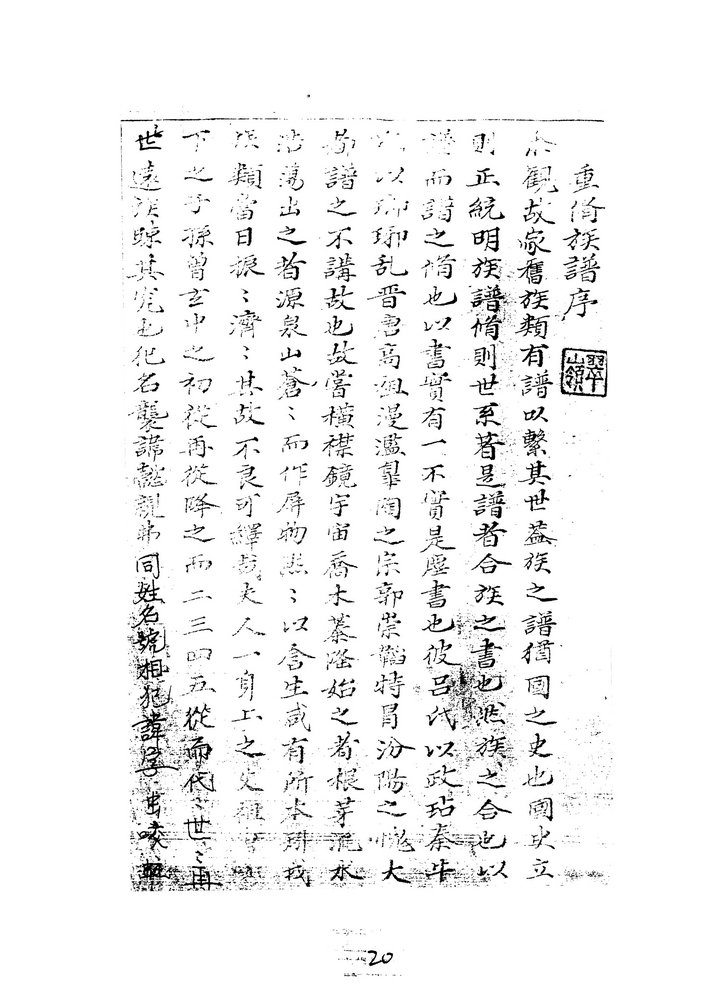 重脩族譜序
翠山嶺
余觀故家舊族類有譜以繫其世葢族之譜猶國之史也國史立
則正統明族譜脩則世系著是譜者合族之書也然族之合也以
譜而譜之脩也以書實有一不實是塵書也彼呂代以政玷秦牛
以瑯琊乱晋唐高祖漫濫皋陶之宗郭崇韜特冒汾陽之愧大
都譜之不講故也故嘗橫襟鏡宇宙喬木蓁隆始之者根芽流水
浩蕩出之者源泉山蒼〻而作屏物然〻以含生咸有所本矧我
族類當日振〻濟〻其故不良可繹哉夫人一身上之
下之子孫曾玄中之初從再從降之而二三四五從而代〻世〻
世遠族賖其究也犯名襲諱懿親弟同姓名號相犯諱字
20